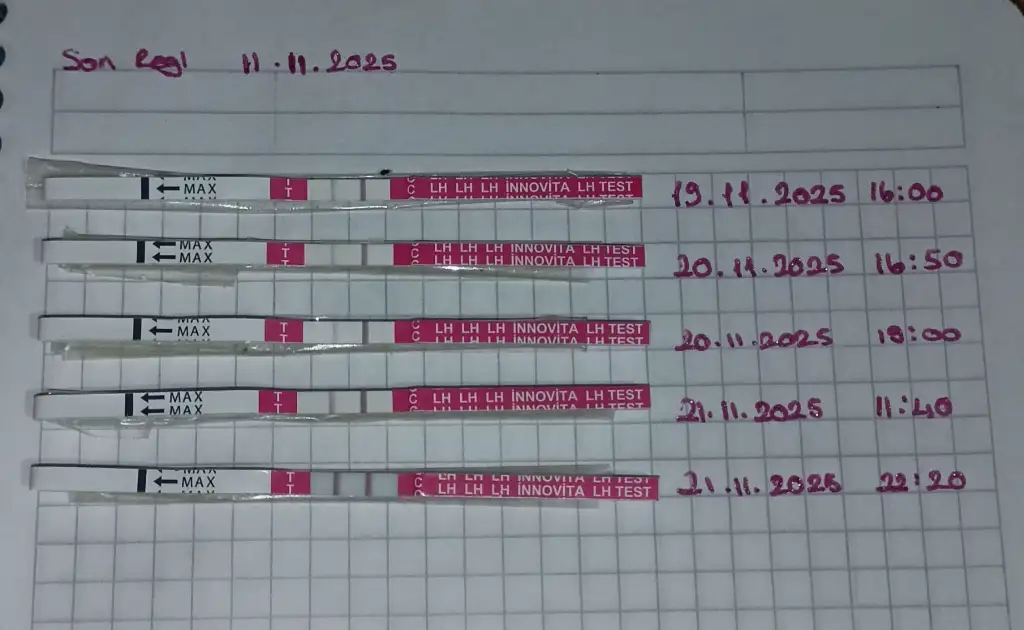 Son Regl 11.11.2025
MAX
← MAX T T C C LH LH LH İNNOVİTA LH TEST 19.11.2025 16:00
← MAX
← MAX T C C LH LH LH İNNOVİTA LH TEST
LH LH LH İNNOVİTA LH TEST 20.11.2025 16:50
← MAX T T C C LH LH LH İNNOVİTA LH TEST
LH LH LH İNNOVİTA LH TEST 20.11.2025 18:00
← MAX
← MAX T T C C LH LH LH İNNOVİTA LH TEST
LH LH LH İNNOVİTA LH TEST 21.11.2025 11:40
MAX
← MAX
MAX T T C C LH LH LH İNNOVİTA LH TEST
LH LH LH İNNOVİTA LH TEST 21.11.2025 22:20